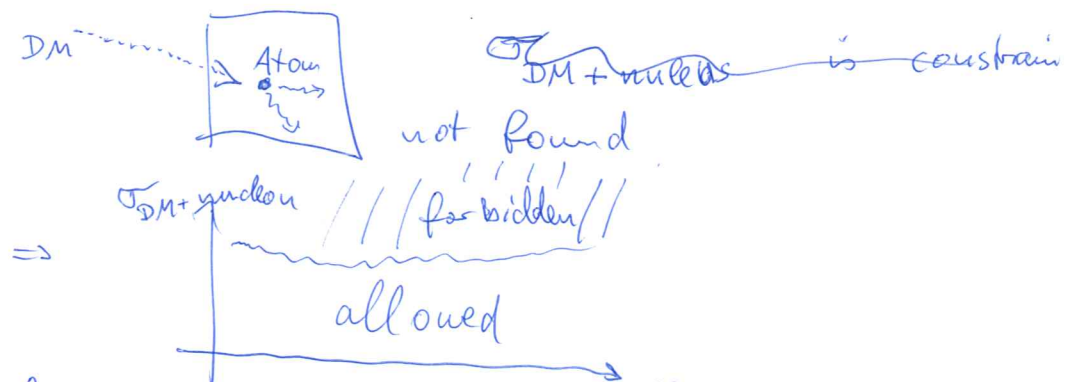 DM
Atom
σ DM + nucleus is constrain
not found
σ DM + nucleon
forbidden
⇒
allowed